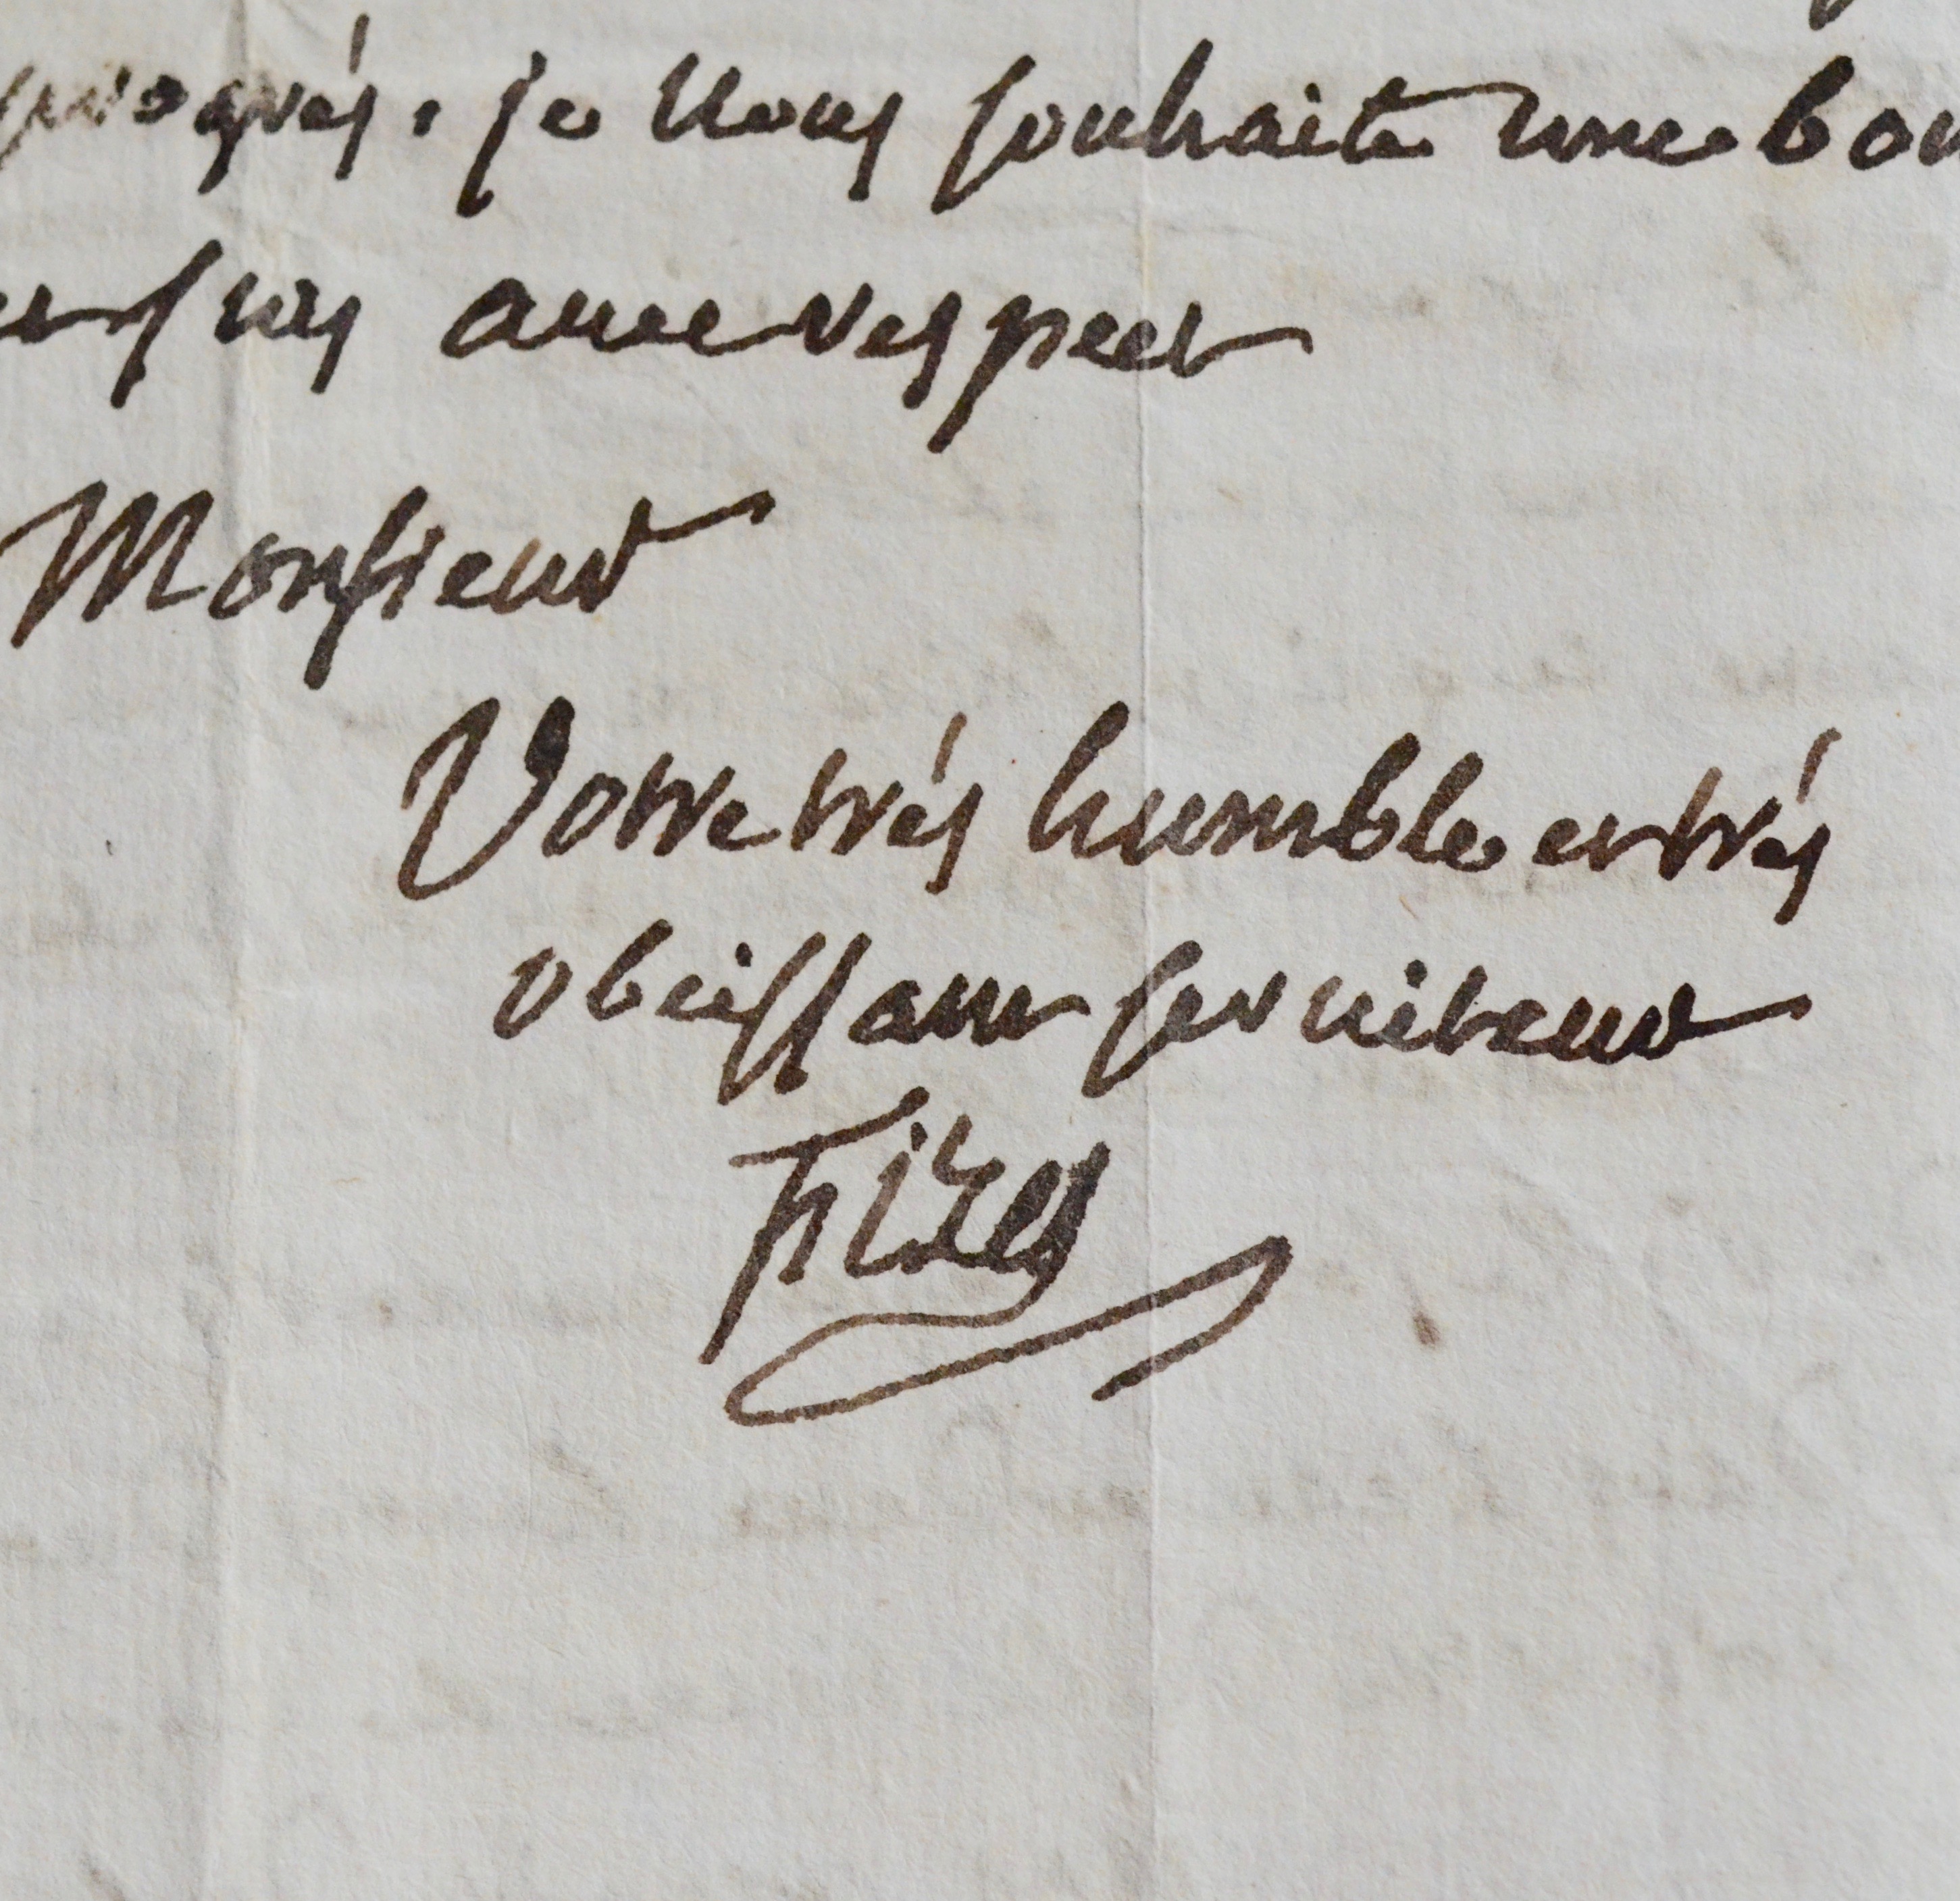 progrés. je vous souhaite une bon
suis avec respect
Monsieur
Votre trés humble et trés
obeissant serviteur
Fizes